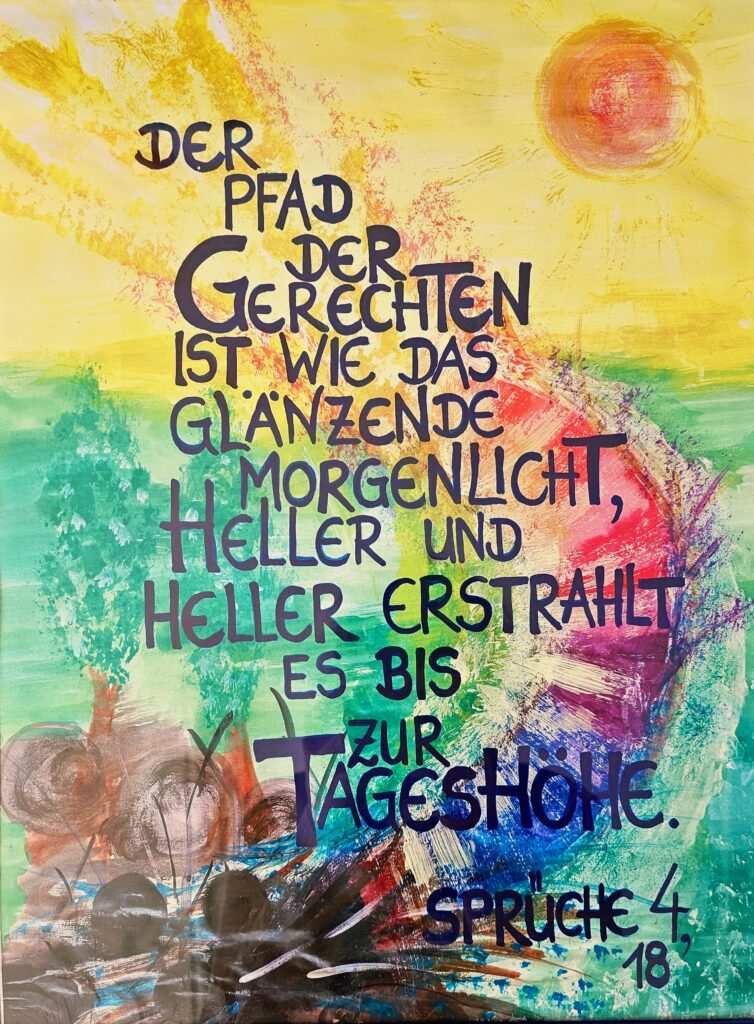 DER
PFAD
DER
GERECHTEN
IST WIE DAS
GLÄNZENDE
MORGENLICHT,
HELLER UND
HELLER ERSTRAHLT
ES BIS
ZUR
TAGESHÖHE.
SPRÜCHE 4,
18